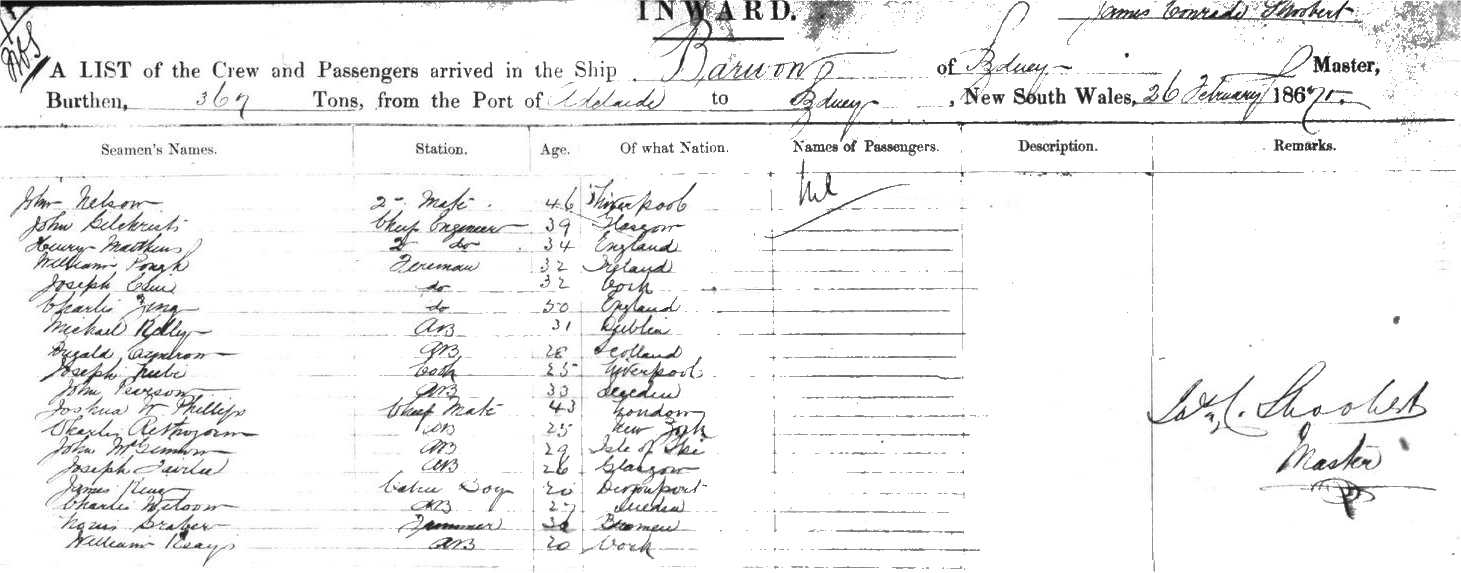 INWARD.
James Conrade Shoobert
A LIST of the Crew and Passengers arrived in the Ship Barwon of Sydney Master,
Burthen, 367 Tons, from the Port of Adelaide to Sydney, New South Wales, 26 February 1867
Seamen's Names. Station. Age. Of what Nation. Names of Passengers. Description. Remarks.
John Nelson 2 Mate 46 Liverpool Nil
John Gilchrist Chief Engineer 39 Glasgow
Henry 2 do 34 England
William Fireman 32 Ireland
Joseph do 32 Cork
Charles do 50 England
Michael Kelly AB 31 Dublin
Dugald Cameron AB 28 Scotland
Joseph Cook 25 Liverpool
John Pearson AB 33 Sweden
Joshua W Phillips Chief Mate 43 London
Charles AB 25 New York
John AB 29 Isle of
Joseph Fairlie AB 26 Glasgow
James King Cabin Boy 20 Devonport
Charles AB 27 Sweden
Trimmer Bremen
William AB 20 Cork
Jas. C. Shoobert
Master